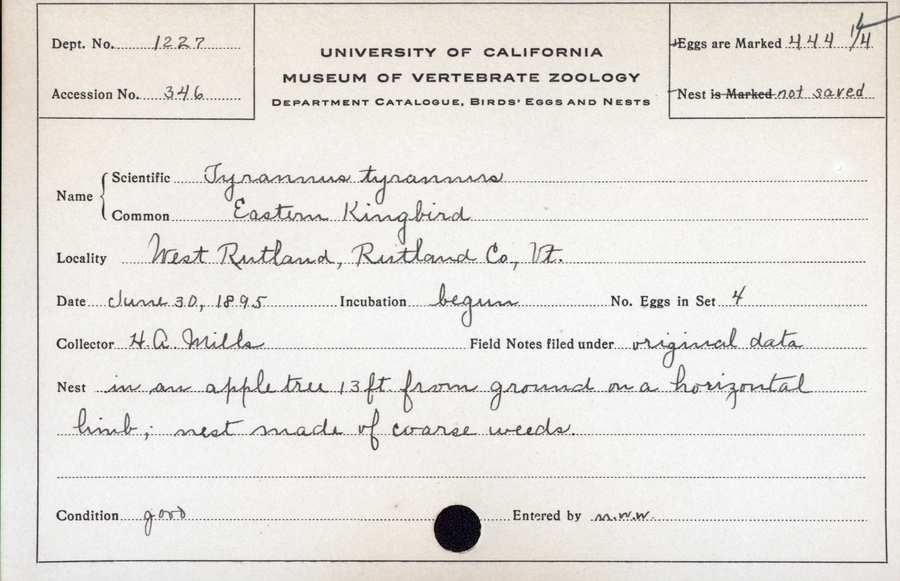 Dept. No. 1227
Accession No. 346
UNIVERSITY OF CALIFORNIA
MUSEUM OF VERTEBRATE ZOOLOGY
DEPARTMENT CATALOGUE, BIRDS' EGGS AND NESTS
Eggs are Marked 444 1/4
Nest is Marked not saved
Name
Scientific Tyrannus tyrannus
Common Eastern Kingbird
Locality West Rutland, Rutland Co., Vt.
Date June 30, 1895 Incubation begun No. Eggs in Set 4
Collector H.A. Mills Field Notes filed under original data
Nest in an apple tree 13 ft. from ground on a horizontal
limb; nest made of coarse weeds.
Condition good Entered by m.w.w.